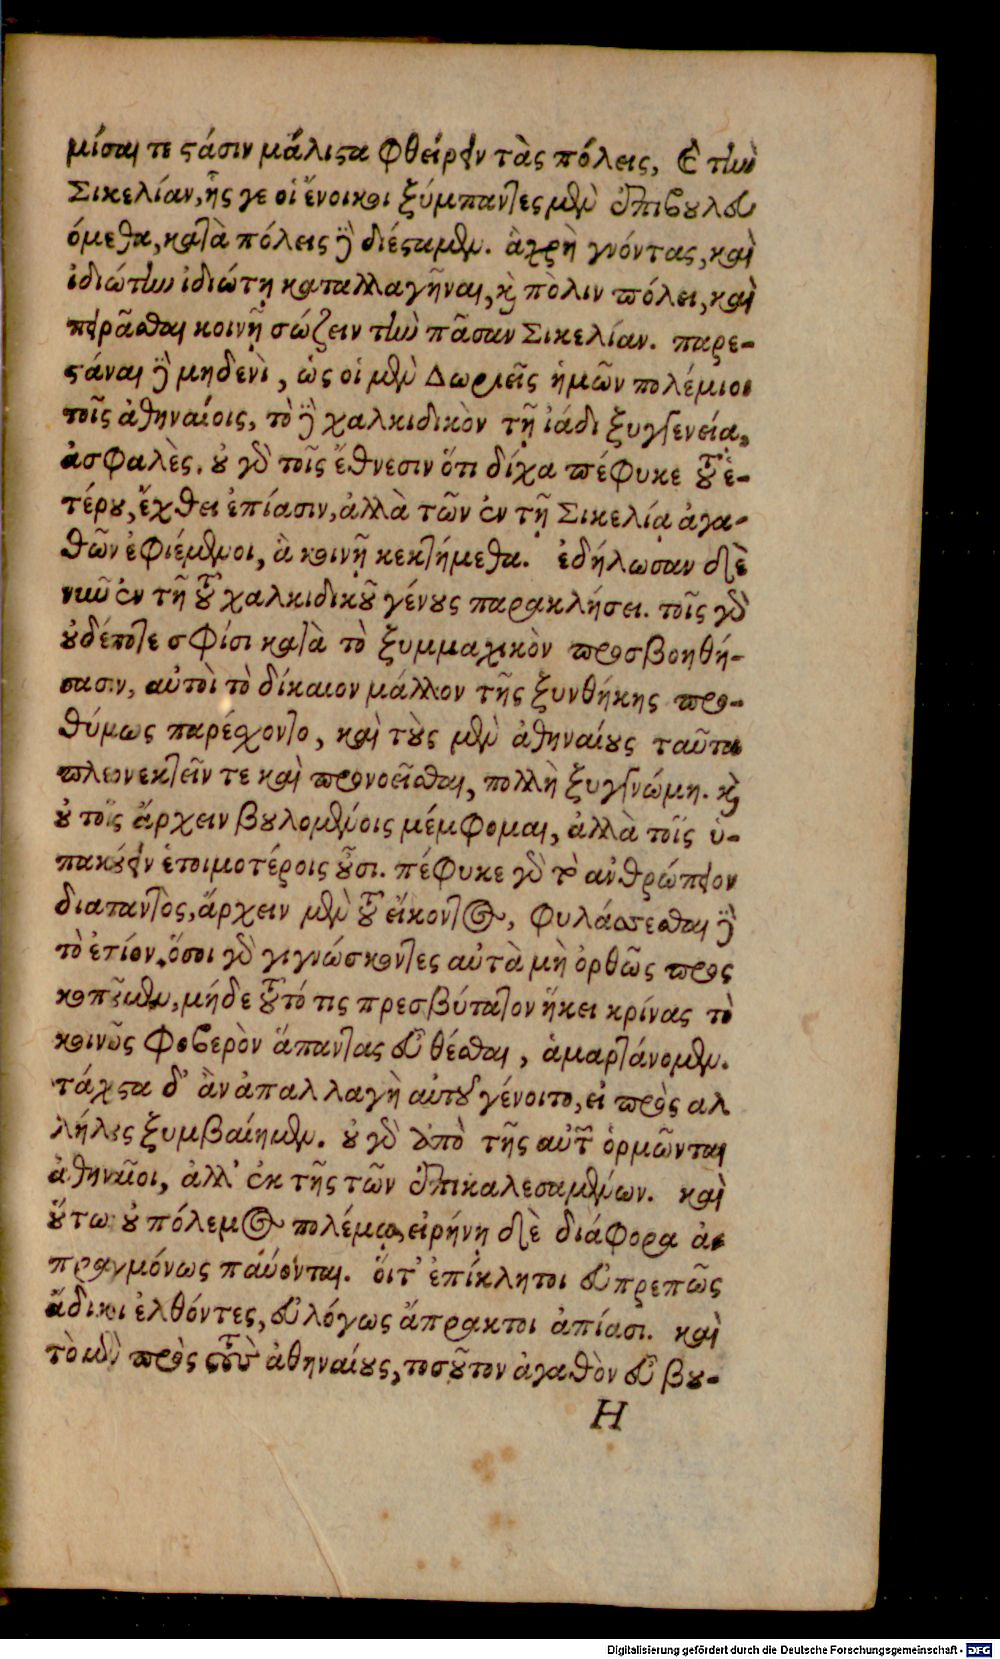 μίσαι τε στάσιν μάλιστα φθείρειν τὰς πόλεις, καὶ τὴν
Σικελίαν, ἧς γε οἱ ἔνοικοι ξύμπαντες μὲν ἐπιβουλευ
όμεθα, κατὰ πόλεις δὲ διέσταμεν. ἃ χρὴ γνόντας, καὶ
ἰδιώτην ἰδιώτῃ καταλλαγῆναι, καὶ πόλιν πόλει, καὶ
πειρᾶσθαι κοινῇ σώζειν τὴν πᾶσαν Σικελίαν. παρε-
στάναι δὲ μηδενὶ, ὡς οἱ μὲν Δωριεῖς ἡμῶν πολέμιοι
τοῖς ἀθηναίοις, τὸ δὲ χαλκιδικὸν τῇ ἰάδι ξυγγενείᾳ,
ἀσφαλὲς. οὐ γὰρ τοῖς ἔθνεσιν ὅτι δίχα πέφυκε τοῦ ἑ-
τέρου, ἔχθει ἐπίασιν, ἀλλὰ τῶν ἐν τῇ Σικελίᾳ ἀγα-
θῶν ἐφιέμενοι, ἃ κοινῇ κεκτήμεθα. ἐδήλωσαν δὲ
νῦν ἐν τῇ τοῦ χαλκιδικοῦ γένους παρακλήσει. τοῖς γὰρ
οὐδέποτε σφίσι κατὰ τὸ ξυμμαχικὸν προσβοηθή-
σασιν, αὐτοὶ τὸ δίκαιον μάλλον τῆς ξυνθήκης προ-
θύμως παρέχοντο, καὶ τοὺς μὲν ἀθηναίους ταῦτα
πλεονεκτεῖν τε καὶ προνοεῖσθαι, πολλὴ ξυγγνώμη. καὶ
οὐ τοῖς ἄρχειν βουλομένοις μέμφομαι, ἀλλὰ τοῖς ὑ-
πακούειν ἑτοιμοτέροις οὖσι. πέφυκε γὰρ τὸ ἀνθρώπειον
διαπαντὸς, ἄρχειν μὲν τοῦ εἴκοντος, φυλάσσεσθαι δὲ
τὸ ἐπιόν. ὅσοι γὰρ γιγνώσκοντες αὐτὰ μὴ ὀρθῶς προς
κοποῦμεν, μήδε τοῦτό τις πρεσβύτατον ἥκει κρίνας τὸ
κοινῶς φοβερὸν ἅπαντας εὖ θέσθαι, ἁμαρτάνομεν.
τάχιστα δ' ἂν ἀπαλλαγὴ αὐτοῦ γένοιτο, εἰ πρὸς αλ
λήλους ξυμβαίημεν. οὐ γὰρ ἀπὸ τῆς αὑτῶν ὁρμῶνται
ἀθηναῖοι, ἀλλ' ἐκ τῆς τῶν ἐπικαλεσαμένων. καὶ
οὕτω οὐ πόλεμος πολέμῳ, εἰρήνῃ δὲ διάφορα ἀ
πραγμόνως παύονται. ὅιτ' ἐπίκλητοι εὐπρεπῶς
ἄδικοι ἐλθόντες, εὐλόγως ἄπρακτοι ἀπίασι. καὶ
τὸ μὲν πρὸς τοὺς ἀθηναίους, τοσοῦτον ἀγαθὸν εὖ βου-
H
Digitalisierung gefördert durch die Deutsche Forschungsgemeinschaft - DFG